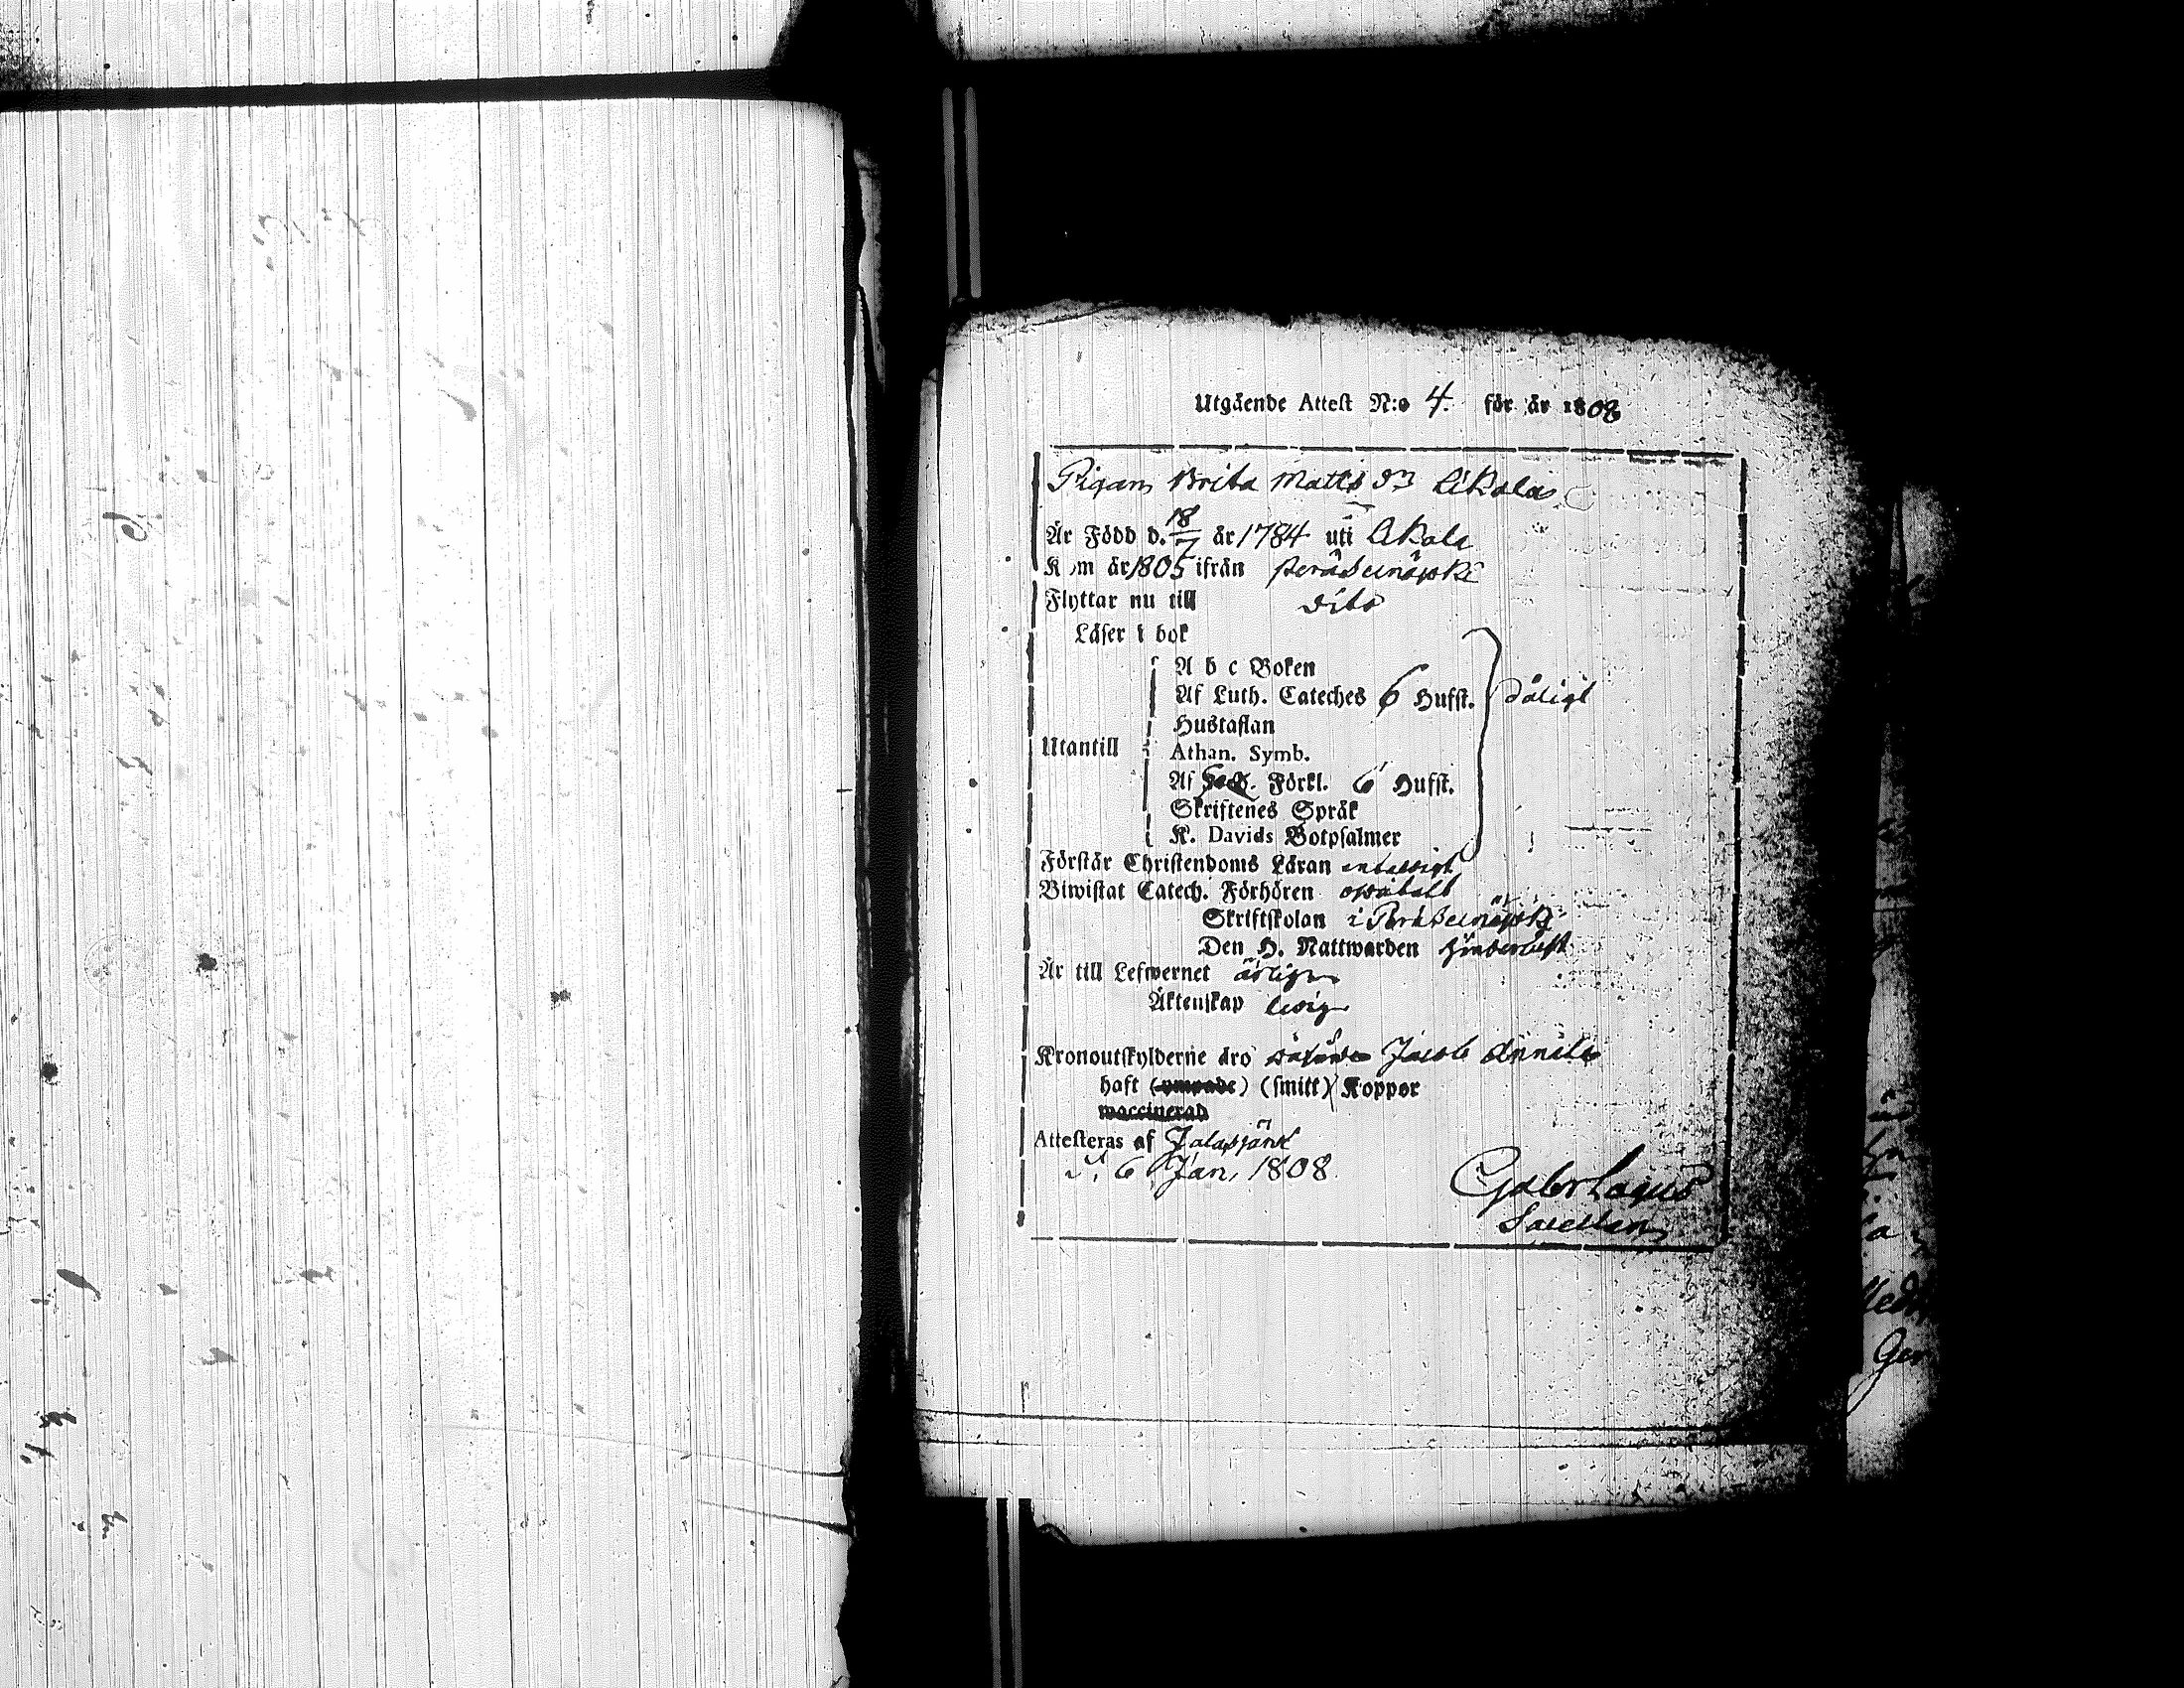 Utgående Attest N:o 4. för år 1808
Pigan Brita Matts dr Likala
Är Född d. 18/7 år 1784 uti Likala
Kom år 1805 ifrån Peräseinäjoki
Flyttar nu till dito
Läser i bok
A b c Boken
Af Luth. Cateches 6 Hufst. dåligt
Hustaflan
Utantill
Athan. Symb.
Af Förkl. 6 Hufst.
Skriftenes Språk
K. Davids Botpsalmer
Förstår Christendoms Läran enfaldigt
Biwistat Catech. Förhören
Skriftskolan i Peräseinäjoki
Den H. Nattwarden
Är till Lefwernet ärlig
Äktenskap ledig
Kronoutskylderne dro Jacob Annala
haft (ympade) (smitt) Koppor
waccinerad
Attesteras af Jalasjärvi
d. 6 Jan. 1808
Gabr Lagus
Sacellan